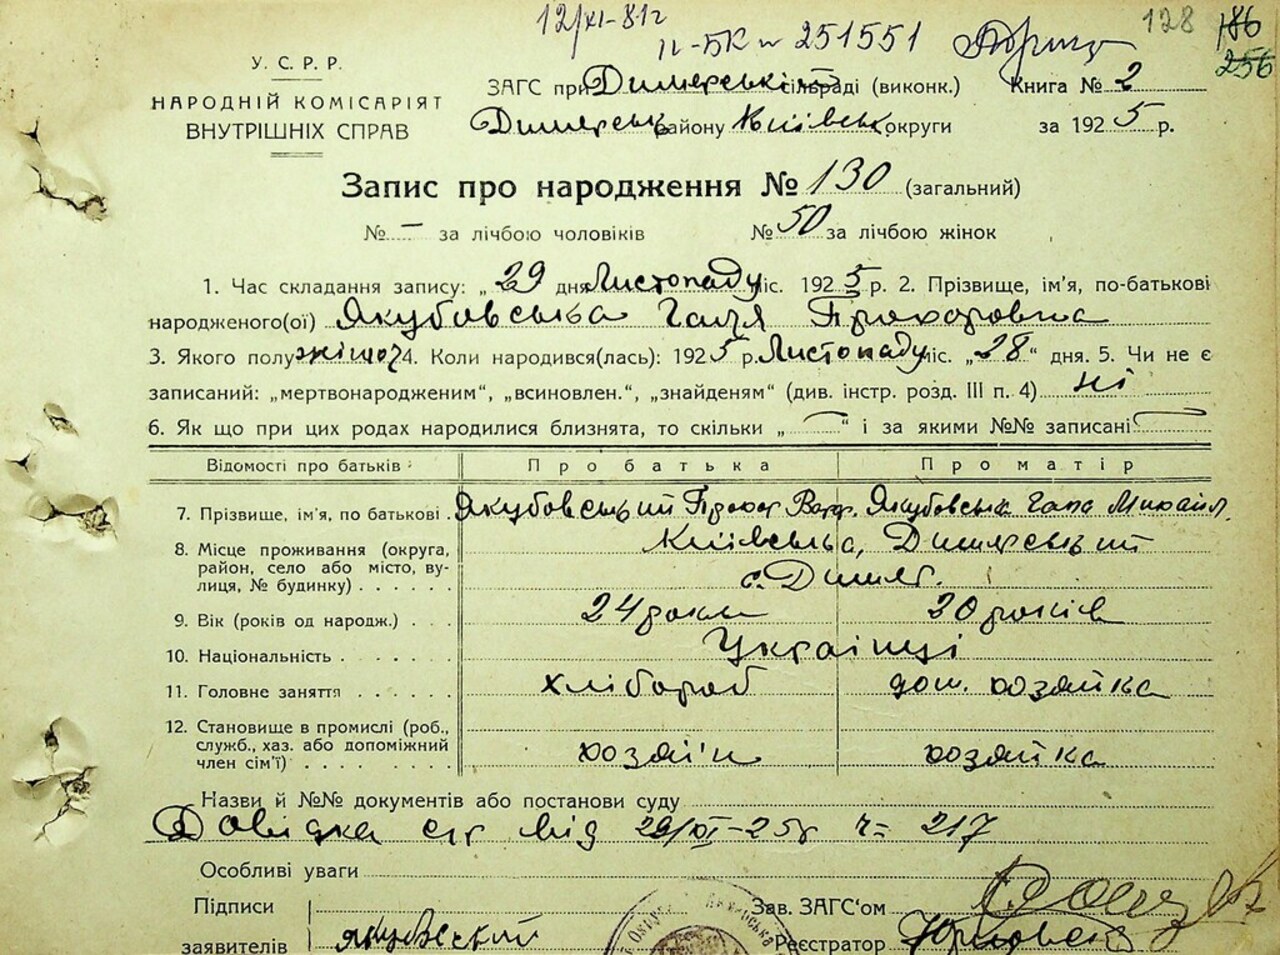 12/XI-81г 128 186
II-БК № 251551 256
У. С. Р. Р.
НАРОДНІЙ КОМІСАРІЯТ
ВНУТРІШНІХ СПРАВ
ЗАГС при Димерській сільраді (виконк.) Книга № 2
Димерськ району Київськ округи за 1925 р.
Запис про народження № 130 (загальний)
№ – за лічбою чоловіків № 50 за лічбою жінок
1. Час складання запису: „29 дня Листопаду міс. 1925 р. 2. Прізвище, ім'я, по-батькові
народженого(ої) Якубовська Галя Прохоровна
3. Якого полу жіноч 4. Коли народився(лась): 1925 р. Листопаду міс. „28“ дня. 5. Чи не є
записаний: „мертвонародженим“, „всиновлен.“, „знайденям“ (див. інстр. розд. III п. 4) ні
6. Як що при цих родах народилися близнята, то скільки „ — “ і за якими №№ записані —
Відомості про батьків Про батька Про матір
7. Прізвище, ім'я, по батькові Якубовський Прохор Якубовська Гапа Михайл.
8. Місце проживання (округа, район, село або місто, вулиця, № будинку) Київська, Димерський
с. Димер.
9. Вік (років од народж.) 24 роки 20 років
10. Національність Українці
11. Головне заняття хлібороб дом. хозяйка
12. Становище в промислі (роб., служб., хаз. або допоміжний член сім'ї) хозяїн хозяйка
Назви й №№ документів або постанови суду
Довідка с/г від 29/XI-25г ч= 217
Особливі уваги
Підписи Зав. ЗАГС'ом
заявителів Якубовский Реєстратор